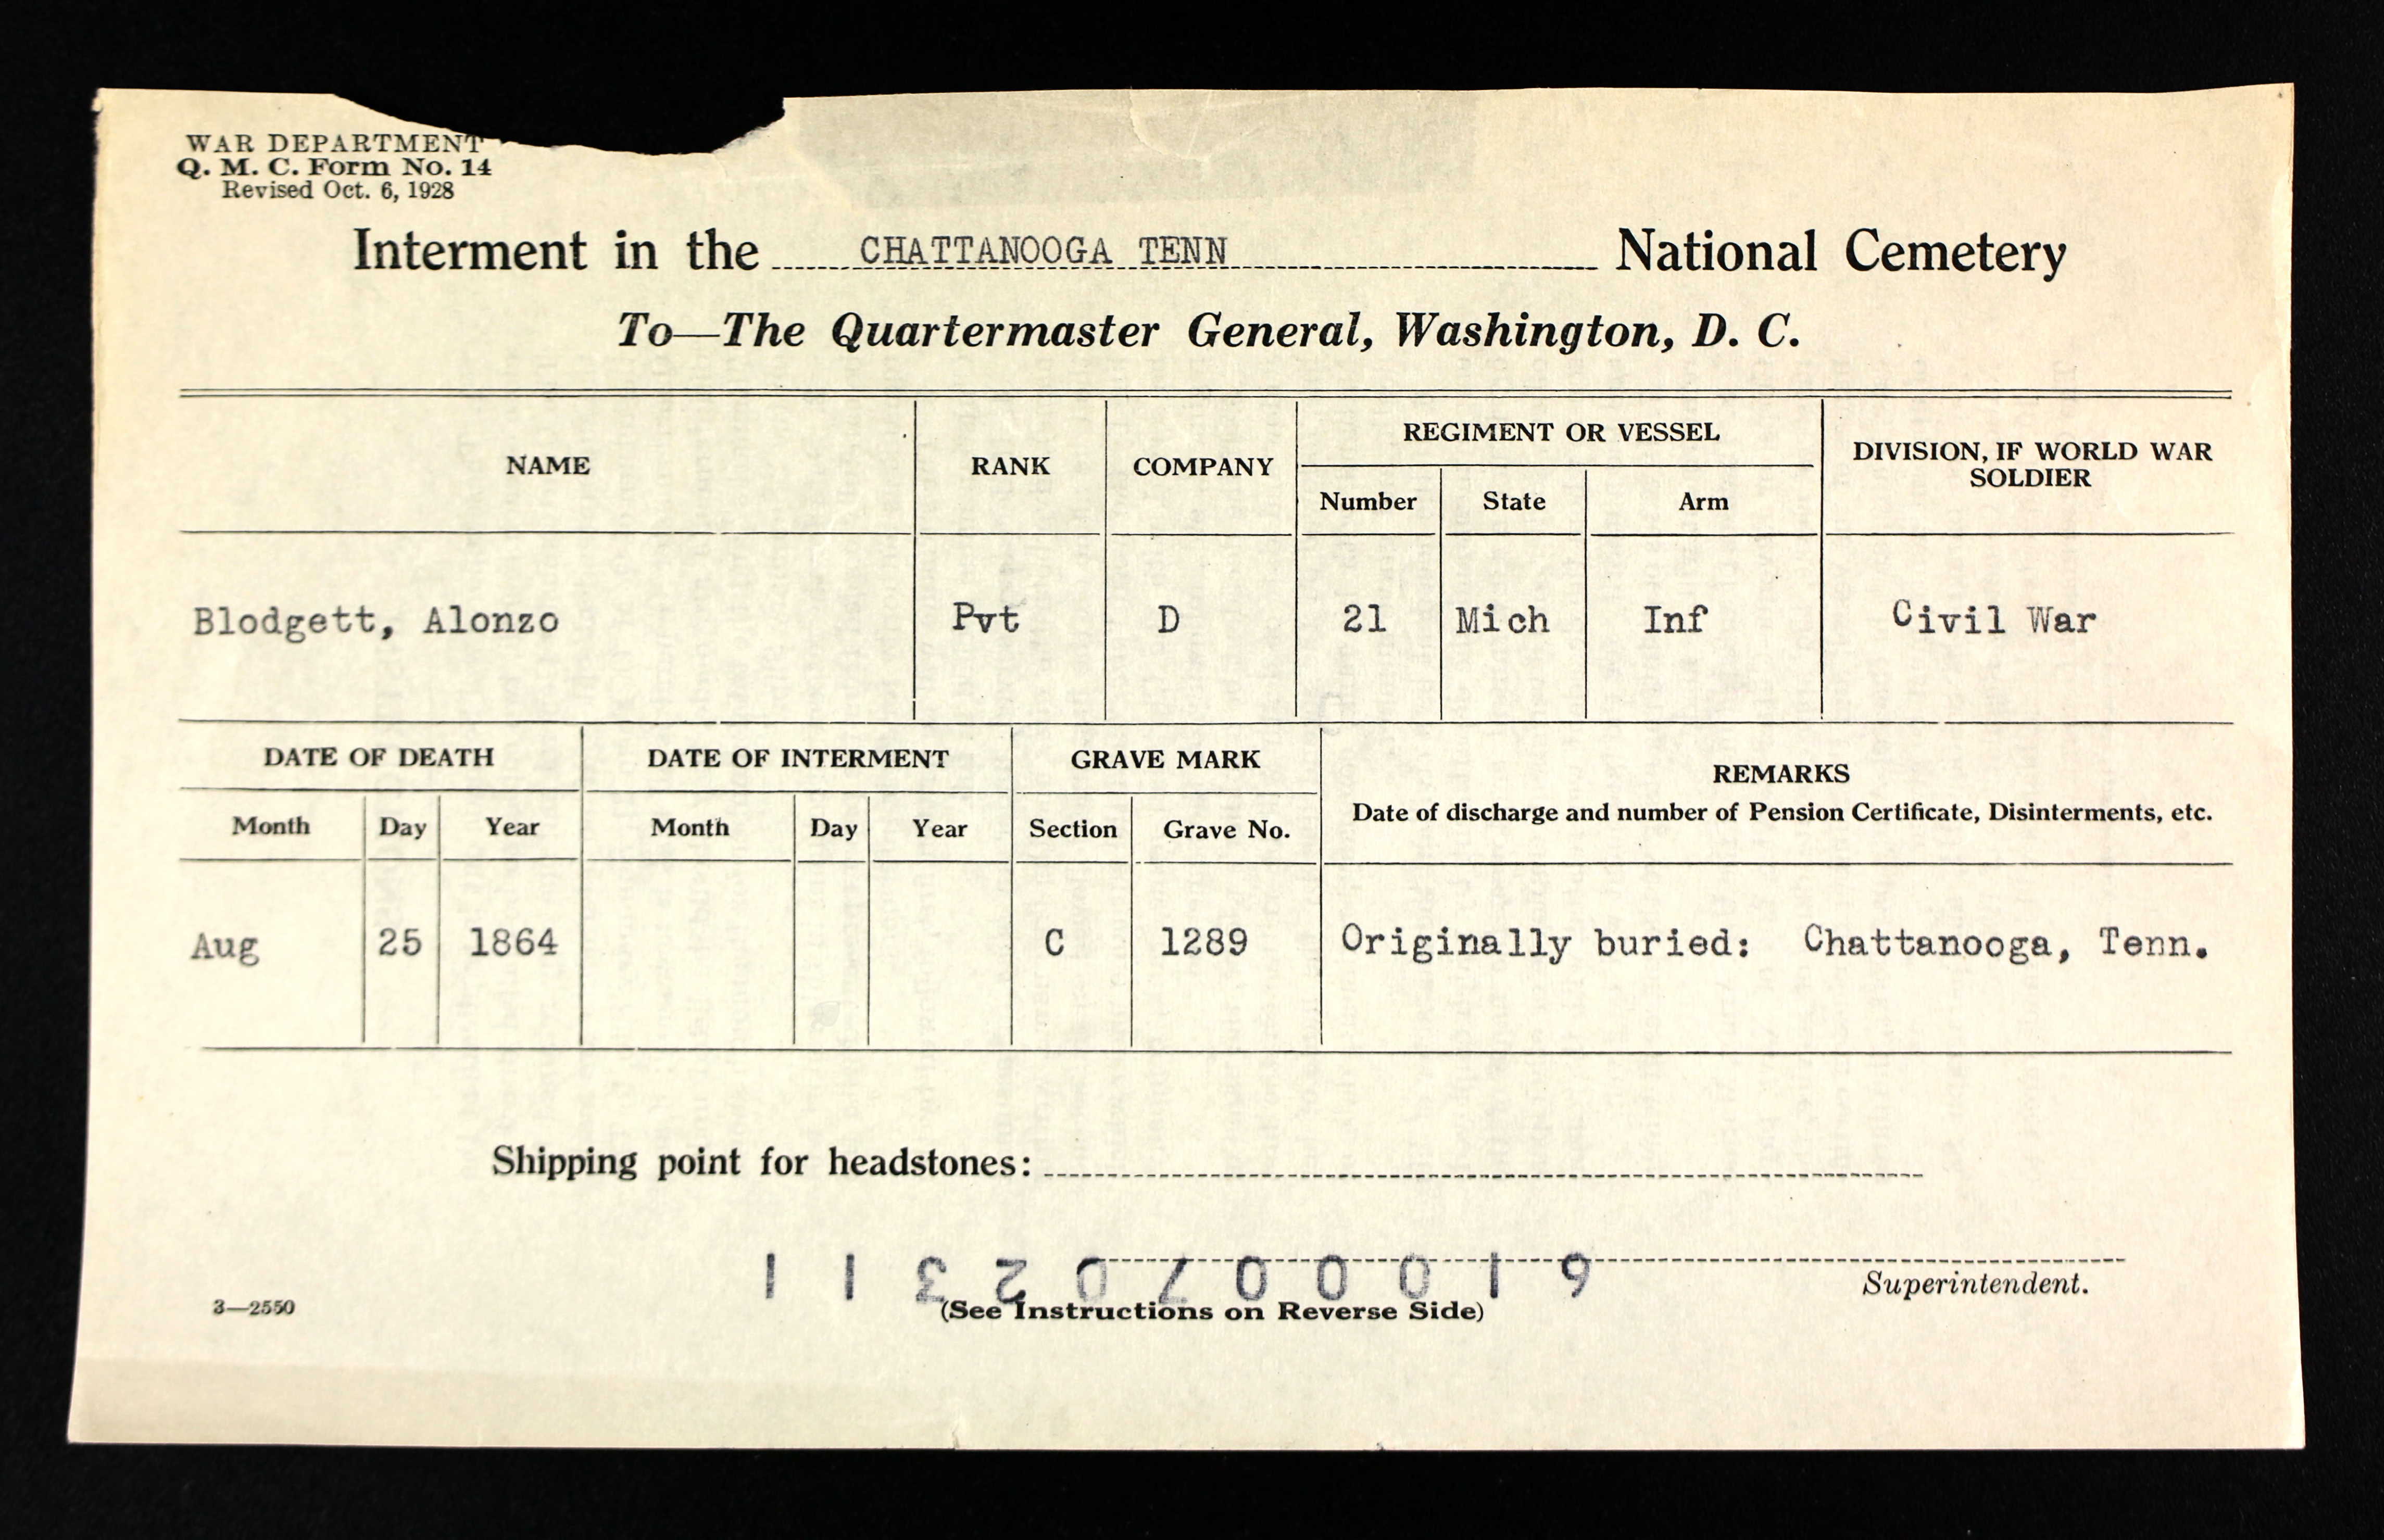 WAR DEPARTMENT
Q. M. C. Form No. 14
Revised Oct. 6, 1928
Interment in the CHATTANOOGA TENN National Cemetery
To—The Quartermaster General, Washington, D. C.
NAME RANK COMPANY REGIMENT OR VESSEL DIVISION, IF WORLD WAR SOLDIER
Number State Arm
Blodgett, Alonzo Pvt D 21 Mich Inf Civil War
DATE OF DEATH DATE OF INTERMENT GRAVE MARK REMARKS
Date of discharge and number of Pension Certificate, Disinterments, etc.
Month Day Year Month Day Year Section Grave No.
Aug 25 1864 C 1289 Originally buried: Chattanooga, Tenn.
Shipping point for headstones:
61000702311
Superintendent.
3—2550
(See Instructions on Reverse Side)